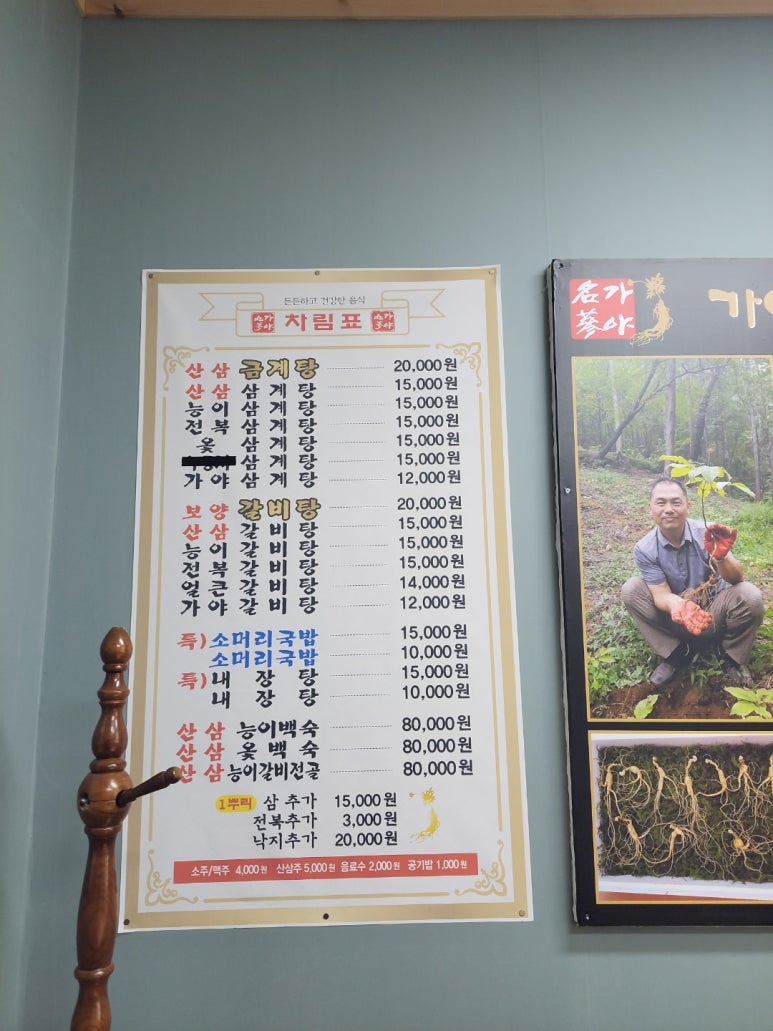 든든하고 건강한 음식
名가蔘야 차림표 名가蔘야
산삼 금계탕 20,000원
산삼 삼계탕 15,000원
능이 삼계탕 15,000원
전복 삼계탕 15,000원
옻 삼계탕 15,000원
삼계탕 15,000원
가야 삼계탕 12,000원
보양 갈비탕 20,000원
산삼 갈비탕 15,000원
능이 갈비탕 15,000원
전복 갈비탕 15,000원
얼큰 갈비탕 14,000원
가야 갈비탕 12,000원
특) 소머리국밥 15,000원
소머리국밥 10,000원
특) 내장탕 15,000원
내장탕 10,000원
산삼 능이백숙 80,000원
산삼 옻백숙 80,000원
산삼 능이갈비전골 80,000원
1뿌리 삼추가 15,000원
전복추가 3,000원
낙지추가 20,000원
소주/맥주 4,000원 산삼주 5,000원 음료수 2,000원 공기밥 1,000원
名가
蔘야
가